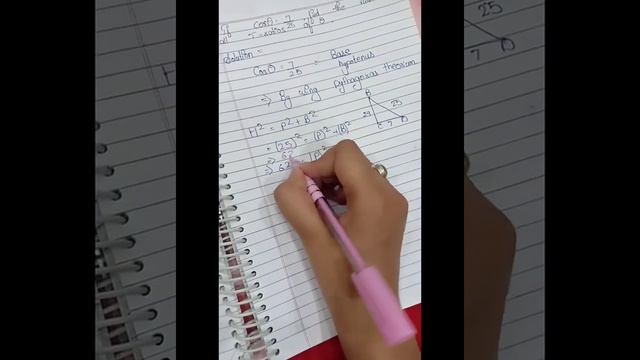 If cosθ = 7/25 find the
all T-ratios of θ
Solution =
Cosθ = 7/25 = Base/hypotenus
⇒ By using Pythagoras theorem
H² = P² + B²
= (25)² = (P)² + (B)²
⇒ 62
(P)²
25
7
25
24
7